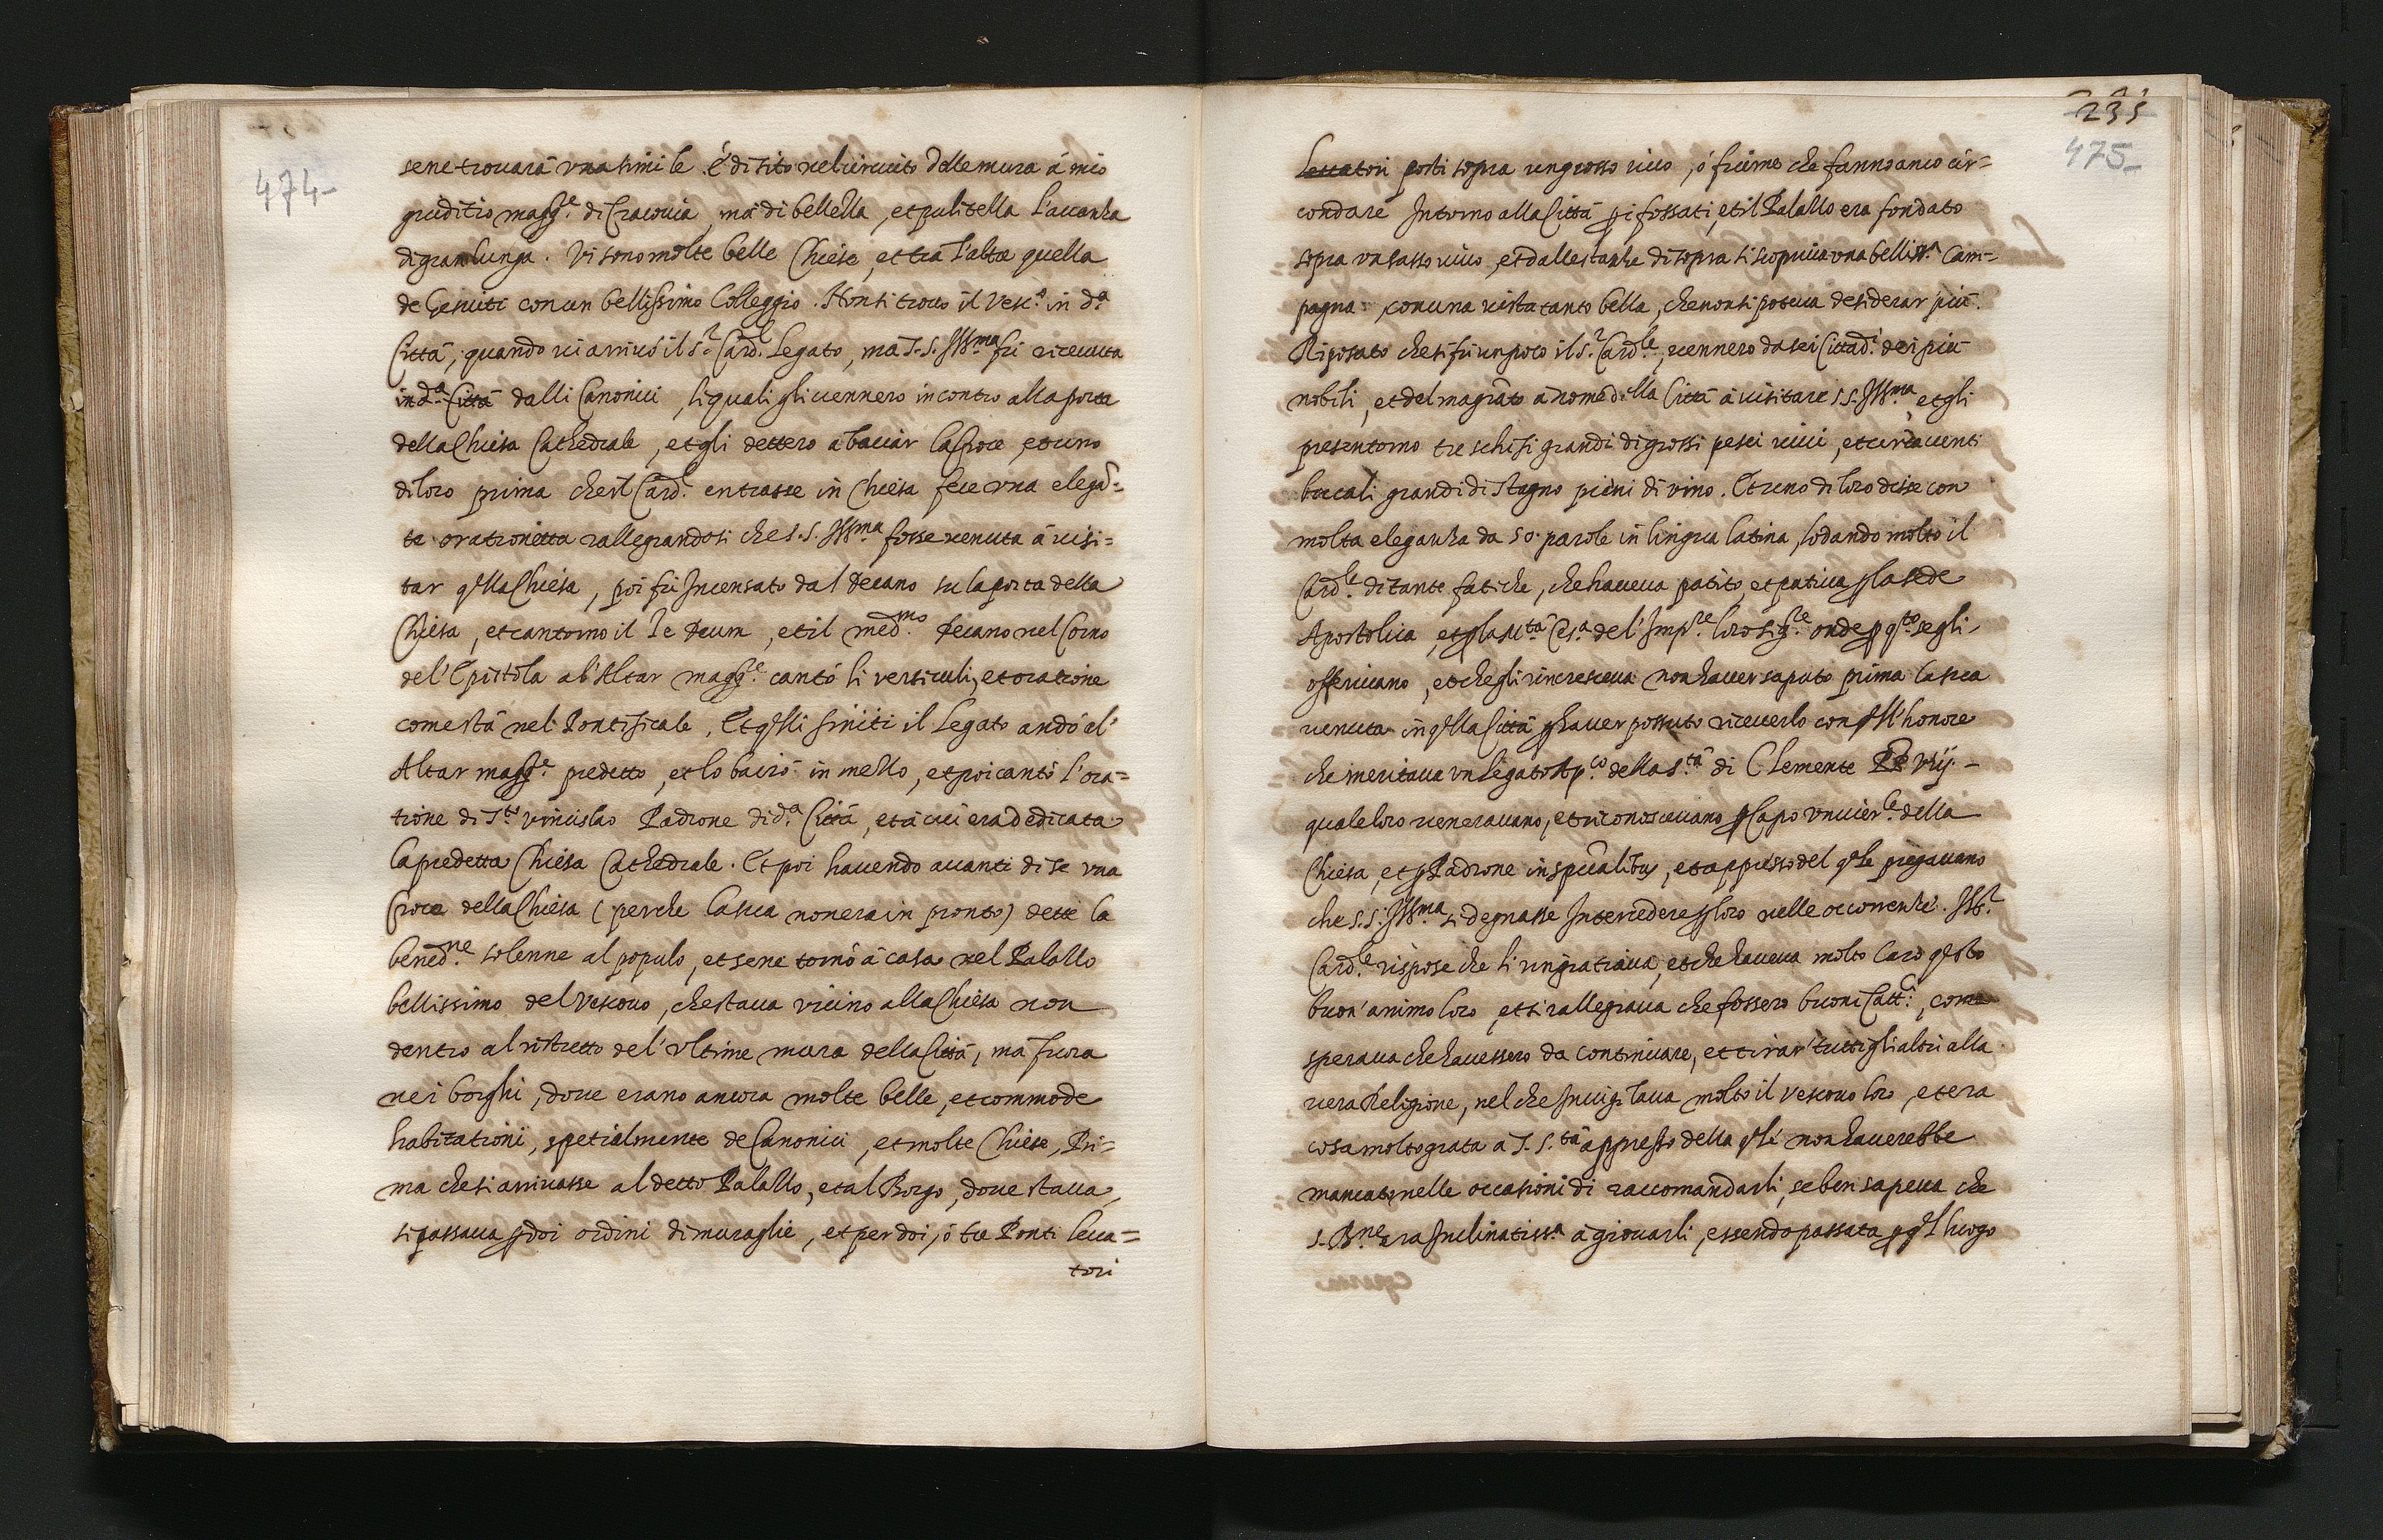 474-
sene trouarà vna simile. è di sito nel circuito delle mura à mio
giuditio magg.re di Cracouia, mà di bellezza, et pulitezza l'auanza
di gran lunga. Vi sono molte belle Chiese, et tra l'altre quella
de Gesuiti con un bellissimo Colleggio. Non si trouo il Vesc.o in d.a
Città, quando ui arriuò il s.r Card.l Legato, ma S.S. Ill.ma fù riceuuta
in d.a Città dalli Canonici, li quali gli uennero incontro alla porta
della Chiesa Cathedrale, et gli dettero à baciar la Croce, et uno
di loro prima che il Card.l entrasse in Chiesa fece vna elegā=
te orationetta rallegrandosi che S.S. Ill.ma fosse uenuta à uisi=
tar q̃lla Chiesa, poi fù Incensato dal Decano su la porta della
Chiesa, et cantorno il Te Deum, et il med.mo Decano nel Corno
del'Epistola al'Altar magg.re cantò li versiculi, et oratione
come stà nel Pontificale. Et q̃lli finiti il Legato andò al'
Altar magg.re predetto, et lo baciò in mezzo, et poi cantò l'ora=
tione di S.to Vincislao Padrone di d.a Città, et à cui era dedicata
la predetta Chiesa Cathedrale. Et poi hauendo auanti di se vna
Croce della Chiesa (perche la sua non era in pronto) dette la
bened.ne solenne al populo, et sene tornò à casa nel Palazzo
bellissimo del Vescouo, che staua vicino alla Chiesa non
dentro al ristretto del'vltime mura della Città, mà fuora
nei borghi, doue erano ancora molte belle, et commode
habitationi, spetialmente de Canonici, et molte Chiese, Pri=
ma che si arriuasse al detto Palazzo, et al Borgo, doue staua,
si passaua p doi ordini di muraglie, et per doi, ò tre Ponti leua=
tori
235
475-
Leuatori posti sopra un grosso riuo, ò fiume che fanno anco cir=
condare Intorno alla Città p i fossati, et il Palazzo era fondato
sopra un sasso uiuo, et dalle stanze di sopra si scopriua vna belliss.a Cam=
pagna con una uista tanto bella, che non si poteua desiderar più.
Riposato che si fù un poco il s.r Card.le, uennero da sei Cittad.i dei più
nobili, et del magrato à nome della Città à uisitare S.S. Ill.ma, et gli
presentorno tre schifi grandi di grossi pesci uiui, et circa uenti
boccali grandi di stagno pieni di vino. Et uno di loro disse con
molta eleganza da 50. parole in lingua latina, lodando molto il
Card.le di tante fatiche, che haueua patito, et patiua p la sede
Apostolica, et p la M.tà Ces.a del'Imp.re loro Sig.re onde p q.to se gli
offeriuano, et che gli rincresceua non hauer saputo prima la sua
uenuta in q̃lla Città p hauer possuto riceuerlo con q̃ll'honore
che meritaua vn Legato Ap.co della S.tà di Clemente PP. viij.-
quale loro uenerauano, et riconosceuano p Capo vniuer.le della
Chiesa, et p Padrone in spūalibus, et appresso del q̃le pregauano
che S.S. Ill.ma si degnasse Intercedere p loro nelle occorrenze. Ill.r
Card.le rispose che li ringratiaua, et che haueua molto caro q̃sto
buon'animo loro, et si rallegraua che fossero buoni Catt.ci, come
speraua che hauessero da continuare, et tirar'tutti gli altri alla
uera Religione, nel che Inuigilaua molto il Vescouo loro, et era
cosa molto grata à S.S.tà appresso della q̃le non hauerebbe
mancato nelle occasioni di raccomandarli, se ben sapeua che
S. B.ne era Inclinatiss.a à giouarli, essendo passata p q̃l luogo